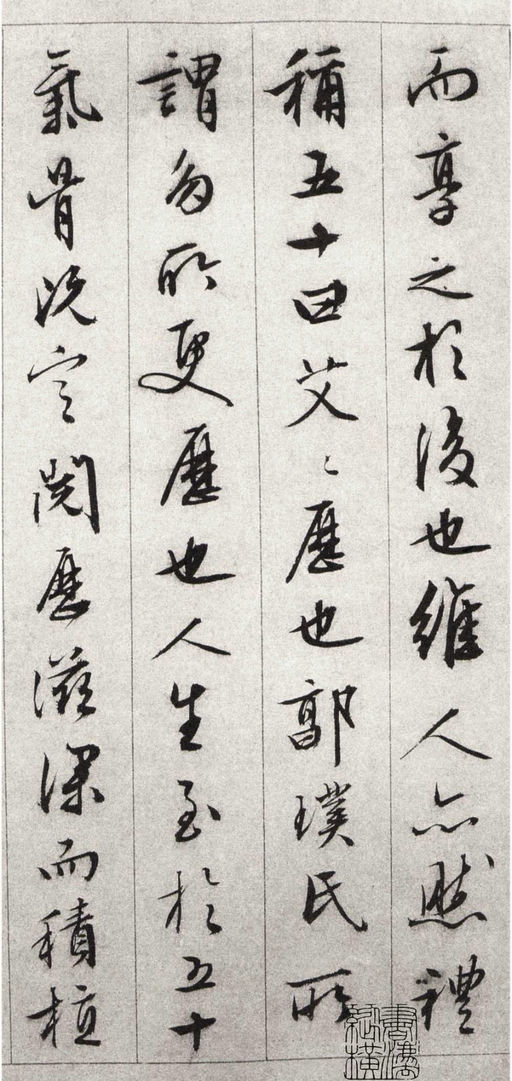 而享之於後也維人亦然禮
稱五十曰艾々歷也郭璞氏所
謂多所更歷也人生至於五十
氣骨既定閱歷滋深而積植
書法縱橫